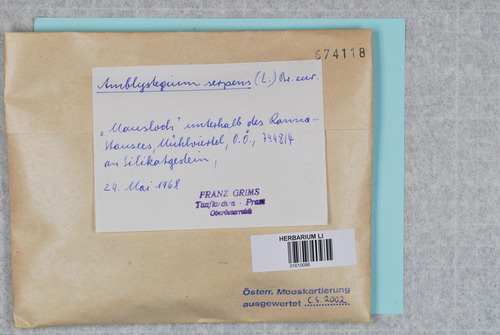 674118
Amblystegium serpens (L.) Br. eur.
„Mausloch" unterhalb des Ranna-
Stausees, Mühlviertel, O.Ö., 7448/4
an Silikatgestein,
24. Mai 1968
FRANZ GRIMS
Taufkirchen - Pram
Oberösterreich
HERBARIUM LI
Österr. Mooskartierung
ausgewertet 2002